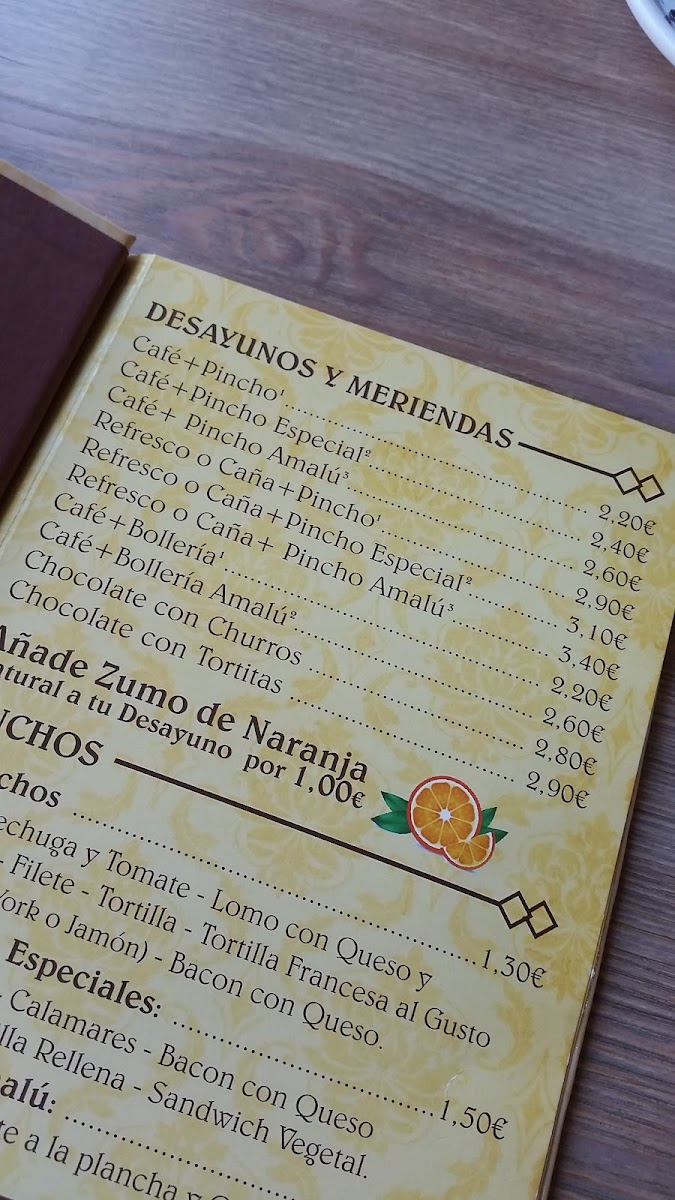 DESAYUNOS Y MERIENDAS
Café+Pincho¹ 2,20€
Café+Pincho Especial² 2,40€
Café+ Pincho Amalú³ 2,60€
Refresco o Caña+Pincho¹ 2,90€
Refresco o Caña+Pincho Especial² 3,10€
Refresco o Caña+ Pincho Amalú³ 3,40€
Café+Bollería¹ 2,20€
Café+Bollería Amalú² 2,60€
Chocolate con Churros 2,80€
Chocolate con Tortitas 2,90€
Añade Zumo de Naranja
atural a tu Desayuno por 1,00€
CHOS
chos 1,30€
echuga y Tomate - Lomo con Queso y
- Filete - Tortilla - Tortilla Francesa al Gusto
York o Jamón) - Bacon con Queso.
Especiales: 1,50€
- Calamares - Bacon con Queso
lla Rellena - Sandwich Vegetal.
alú:
te a la plancha y